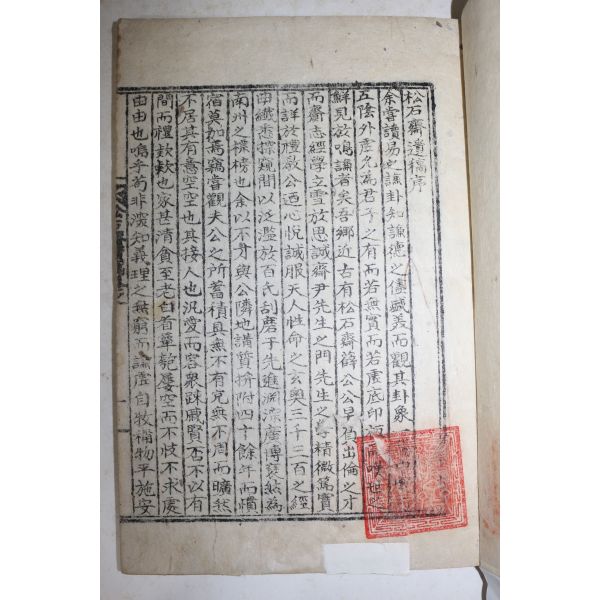 松石齋遺稿序
余嘗讀易之謙卦知謙德之儘盛美而觀其卦象
五陰外虛允爲君子之有而若無實而若虛底印
鮮見於鳴謙者矣吾鄉近古有松石齋薛公公早負出倫之才
而齋志經學立雪於思誠齋尹先生之門先生之學精微篤實
而詳於禮敎公迺心悅誠服天人性命之玄奧三千三百之經
曲纖悉探窺間以泛濫於百氏刮磨子先進淵深廣博
南州之模榜也余以不才與公隣地講質擠附四十餘年而慣
宿莫加焉竊嘗觀夫公之所蓄積具無不有宛無不周而曠然
不居其有慤空空也其接人也汎愛而容衆踈戚賢否不以有
間而禮款款也家甚清貧至老白首簞瓢屢空而不忮不求處
由由也嗚乎苟非深知義理之無窮而謙虛自牧稱物平施安